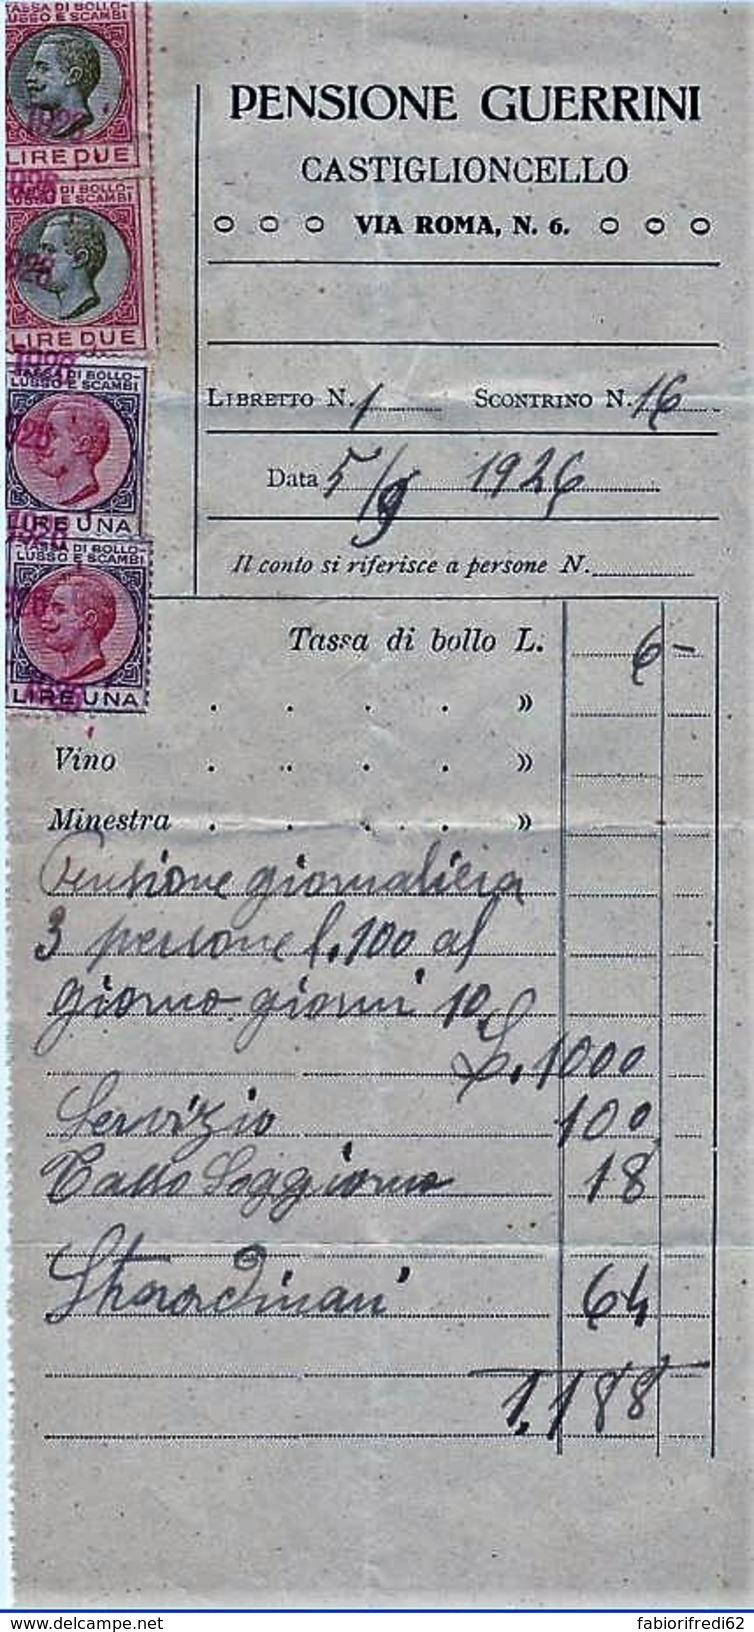 TASSA DI BOLLO-
LUSSO E SCAMBI
LIRE DUE
TASSA DI BOLLO-
LUSSO E SCAMBI
1926
LIRE DUE
1926
TASSA DI BOLLO-
LUSSO E SCAMBI
LIRE UNA
1926
TASSA DI BOLLO-
LUSSO E SCAMBI
LIRE UNA
PENSIONE GUERRINI
CASTIGLIONCELLO
VIA ROMA, N. 6.
LIBRETTO N. 1 SCONTRINO N. 16
Data 5/9 1926
Il conto si riferisce a persone N.
Tassa di bollo L. 6 -
. . . . »
Vino . . . . »
Minestra . . . . »
Pensione giornaliera
3 persone l. 100 al
giorno giorni 10
L. 1000
Servizio 100
Tassa Soggiorno 18
Straordinari 64
1,188
www.delcampe.net
fabiorifredi62